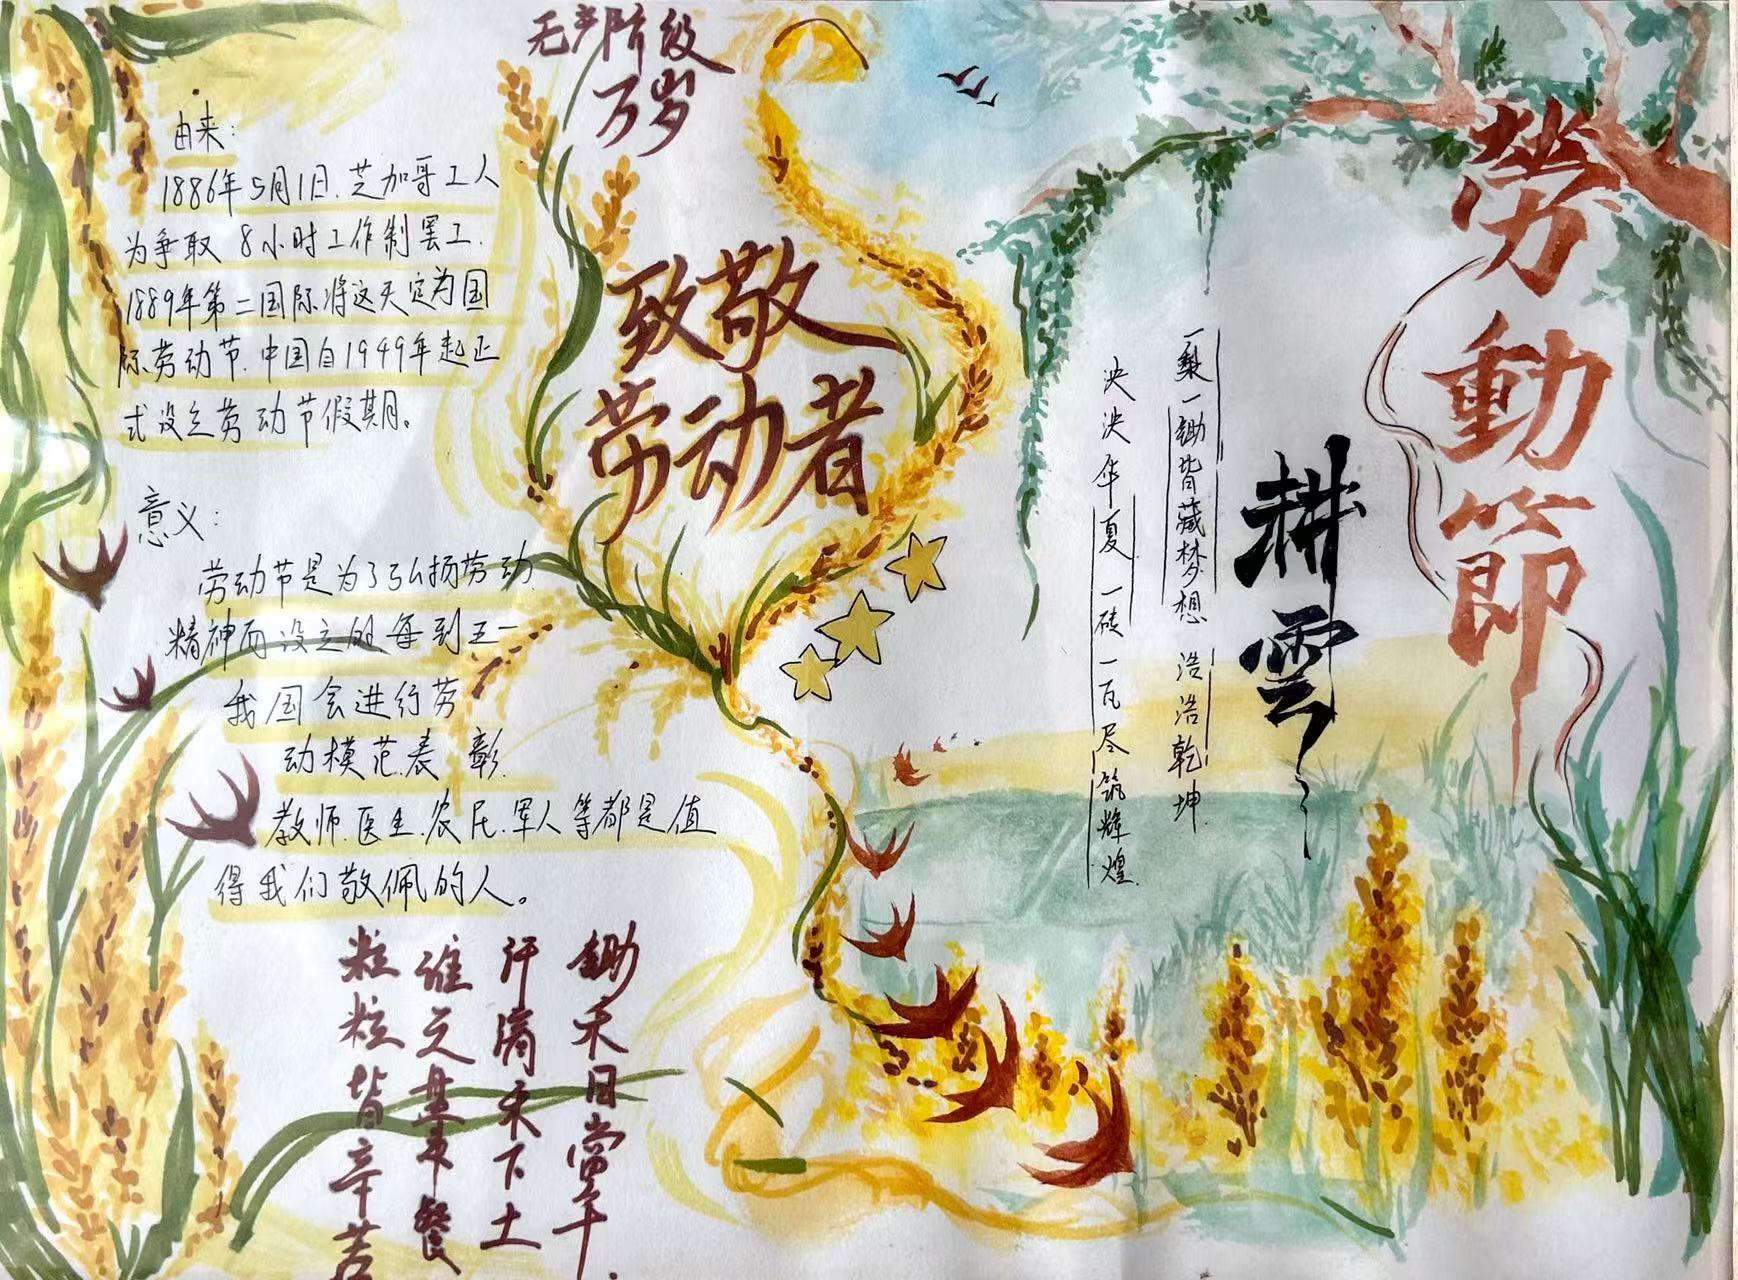 无产阶级
万岁
由来：
1886年5月1日、芝加哥工人
为争取8小时工作制罢工.
1889年第二国际将这天定为国
际劳动节.中国自1949年起正
式设立劳动节假期。
致敬
劳动者
意义：
劳动节是为了弘扬劳动
精神而设立的每到五一
我国会进行劳
动模范表彰.
教师.医生.农民.军人等都是值
得我们敬佩的人。
锄禾日當午
汗滴禾下土
谁知盘中餐
粒粒皆辛苦
勞動節
耕雲
一锄皆藏梦想 浩浩乾坤
泱泱华夏 一砖一瓦尽筑辉煌.